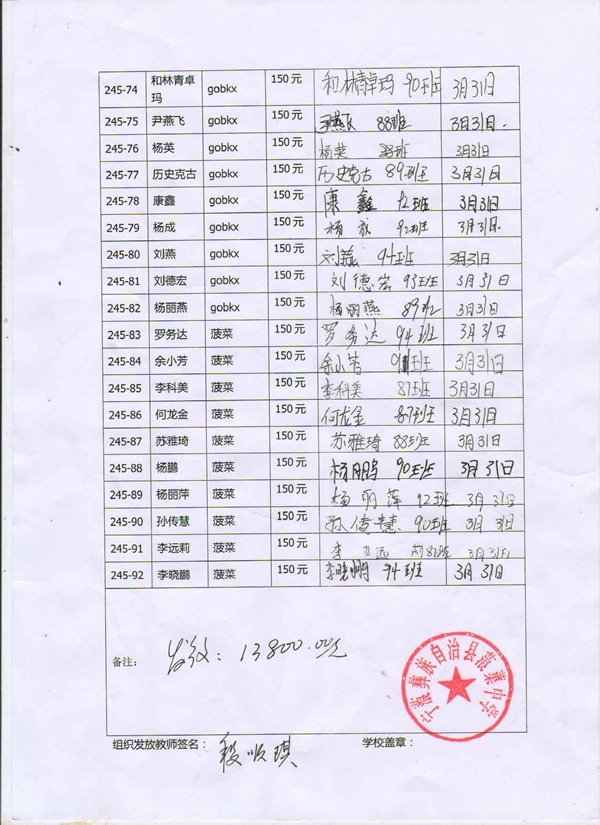 245-74 和林青卓玛 gobkx 150元 和林青卓玛 90班 3月31日
245-75 尹燕飞 gobkx 150元 尹燕飞 88班 3月31日.
245-76 杨英 gobkx 150元 杨英 88班 3月31日
245-77 历史克古 gobkx 150元 历史克古 89班 3月31日
245-78 康鑫 gobkx 150元 康鑫 92班 3月31日
245-79 杨成 gobkx 150元 杨成 92班 3月31日
245-80 刘燕 gobkx 150元 刘燕 94班 3月31日
245-81 刘德宏 gobkx 150元 刘德宏 93班 3月31日
245-82 杨丽燕 gobkx 150元 杨丽燕 89班 3月31日
245-83 罗务达 菠菜 150元 罗务达 94班 3月31日
245-84 余小芳 菠菜 150元 余小芳 班 3月31日
245-85 李科美 菠菜 150元 李科美 87班 3月31日
245-86 何龙金 菠菜 150元 何龙金 87班 3月31日
245-87 苏雅琦 菠菜 150元 苏雅琦 88班 3月31日
245-88 杨鹏 菠菜 150元 杨鹏 90班 3月31日
245-89 杨丽萍 菠菜 150元 杨丽萍 92班 3月31日
245-90 孙传慧 菠菜 150元 孙传慧 90班 3月31日
245-91 李远莉 菠菜 150元 李 3月31日
245-92 李晓鹏 菠菜 150元 李晓鹏 94班 3月31日
备注： 发放：13800.00元
宁蒗彝族自治县菠菜中学
组织发放教师签名： 段顺琪 学校盖章：